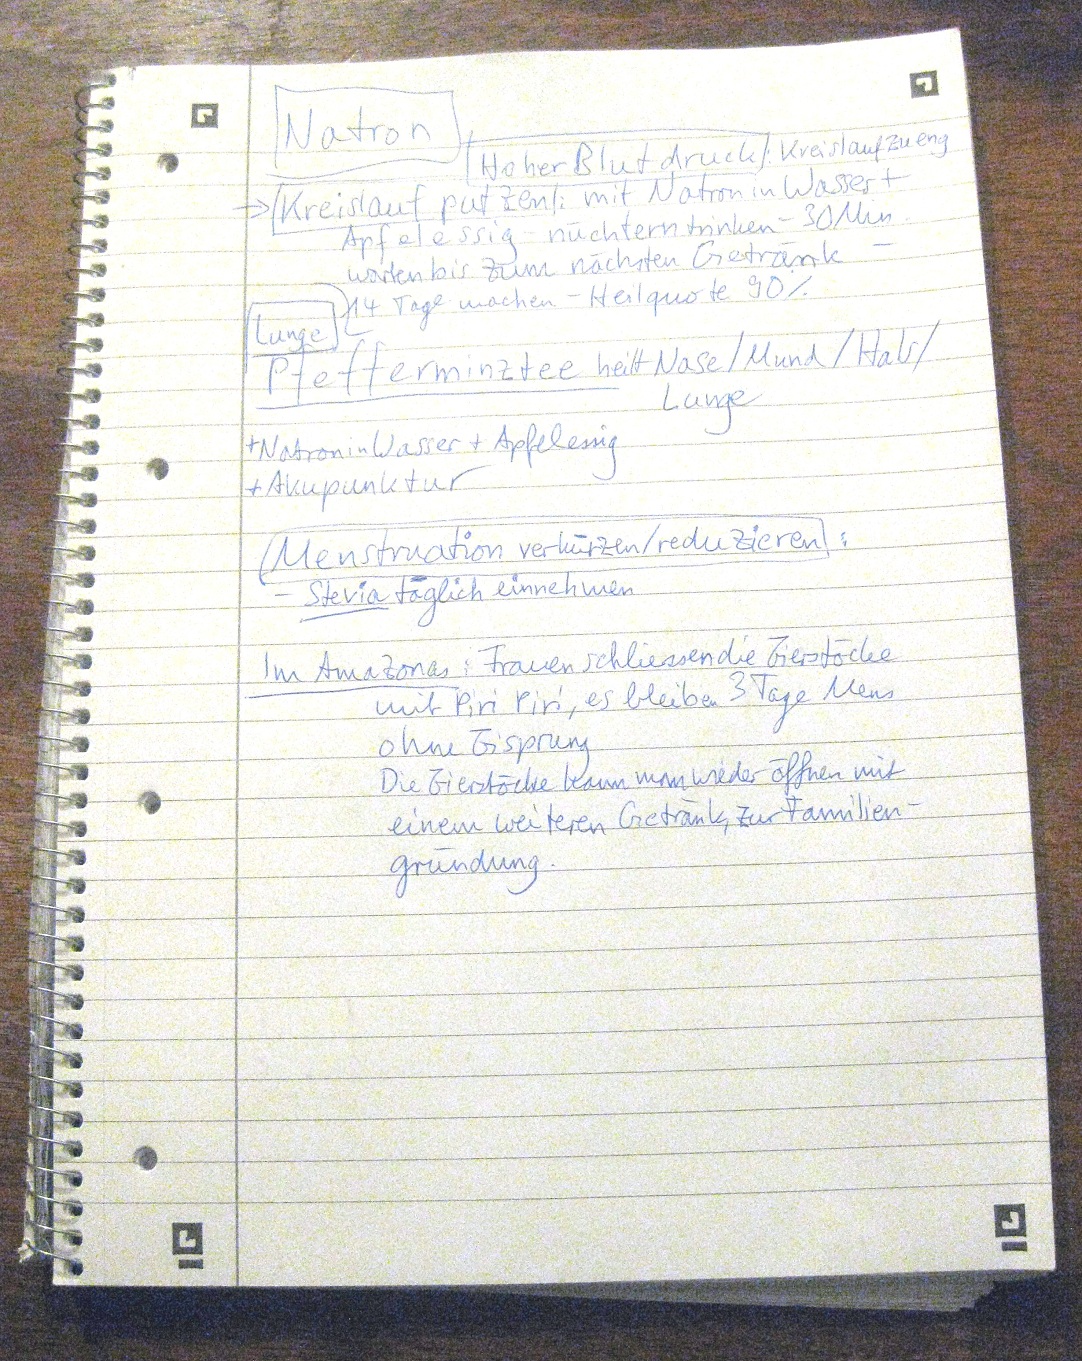 Natron
Hoher Blutdruck: Kreislauf zu eng
→ Kreislauf putzen: mit Natron in Wasser +
Apfelessig - nüchtern trinken - 30 Min.
warten bis zum nächsten Getränk -
14 Tage machen - Heilquote 90%
Lunge
Pfefferminztee heilt Nase/Mund/Hals/
Lunge
+ Natron in Wasser + Apfelessig
+ Akupunktur
Menstruation verkürzen/reduzieren:
- Stevia täglich einnehmen
Im Amazonas: Frauen schliessen die Eierstöcke
mit Piri Piri, es bleiben 3 Tage Mens
ohne Eisprung
Die Eierstöcke kann man wieder öffnen mit
einem weiteren Getränk, zur Familien-
gründung.